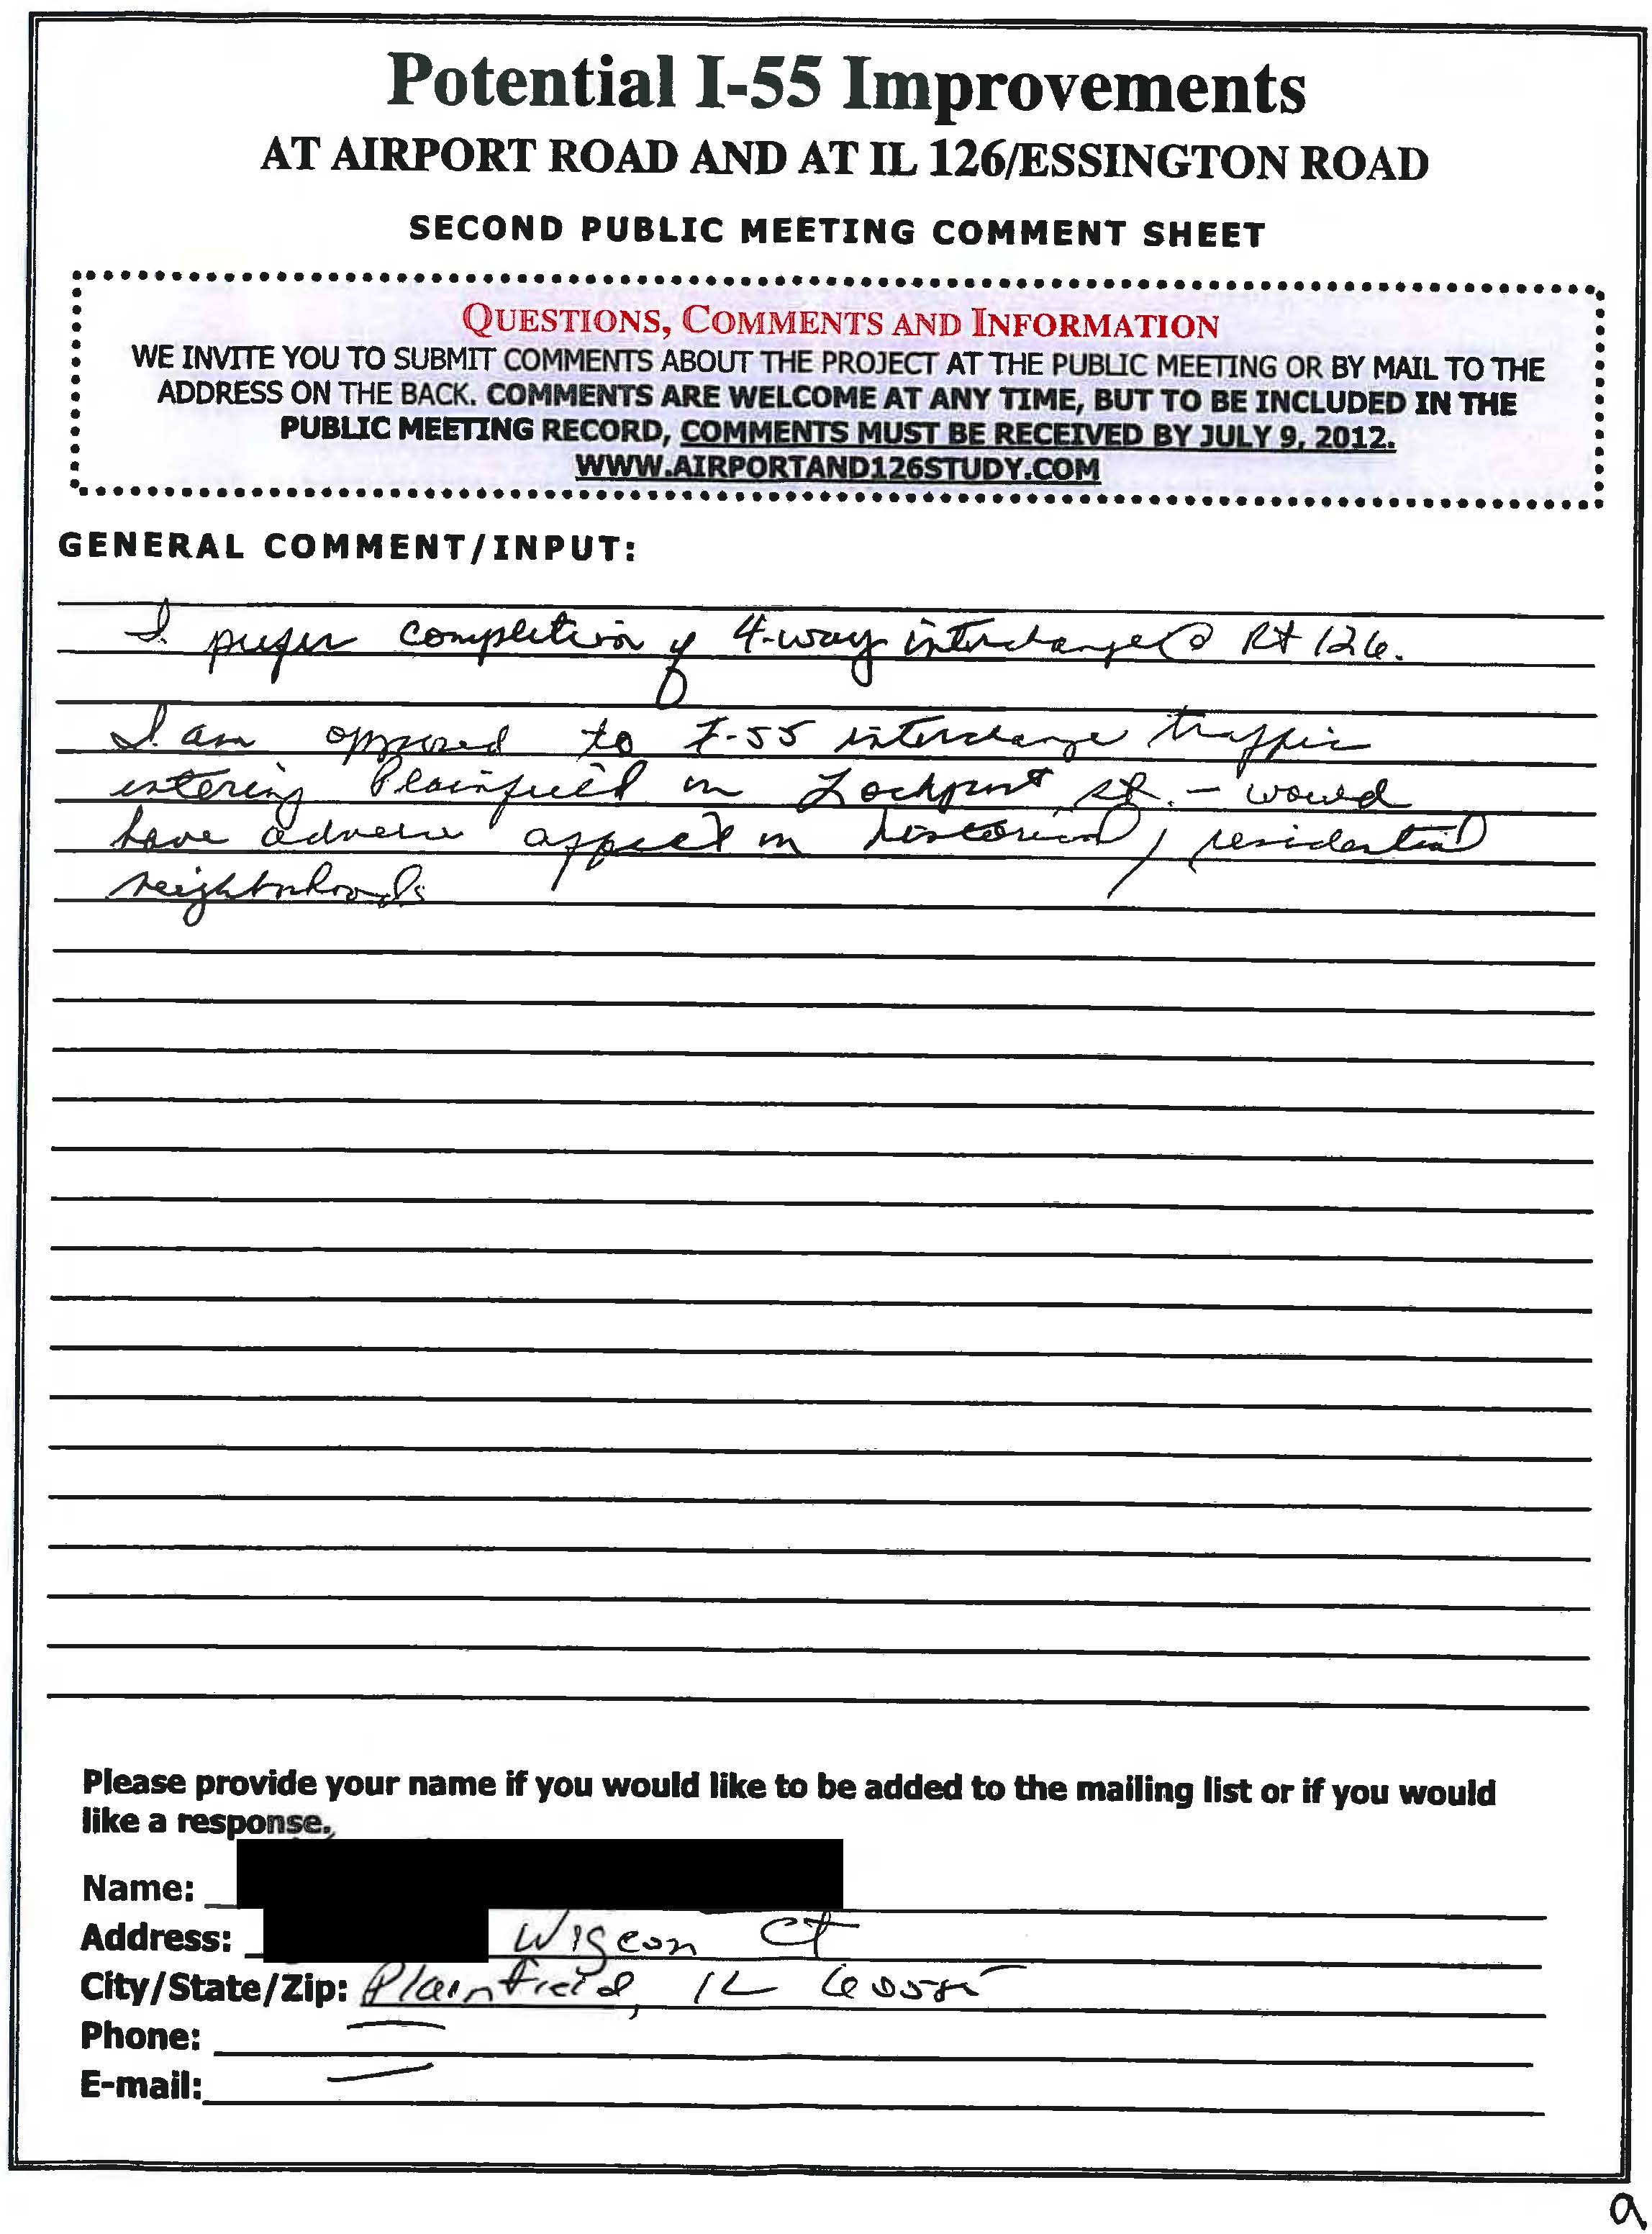 Potential I-55 Improvements
AT AIRPORT ROAD AND AT IL 126/ESSINGTON ROAD
SECOND PUBLIC MEETING COMMENT SHEET
QUESTIONS, COMMENTS AND INFORMATION
WE INVITE YOU TO SUBMIT COMMENTS ABOUT THE PROJECT AT THE PUBLIC MEETING OR BY MAIL TO THE
ADDRESS ON THE BACK. COMMENTS ARE WELCOME AT ANY TIME, BUT TO BE INCLUDED IN THE
PUBLIC MEETING RECORD, COMMENTS MUST BE RECEIVED BY JULY 9, 2012.
WWW.AIRPORTAND126STUDY.COM
GENERAL COMMENT/INPUT:
I prefer completion of 4-way interchange @ Rt 126.
I am opposed to I-55 interchange traffic
entering Plainfield on Lockport St. - would
have adverse affect on historical / residential
neighborhoods
Please provide your name if you would like to be added to the mailing list or if you would
like a response.
Name:
Address: Wigeon Ct
City/State/Zip: Plainfield, IL
Phone: —
E-mail: —
a